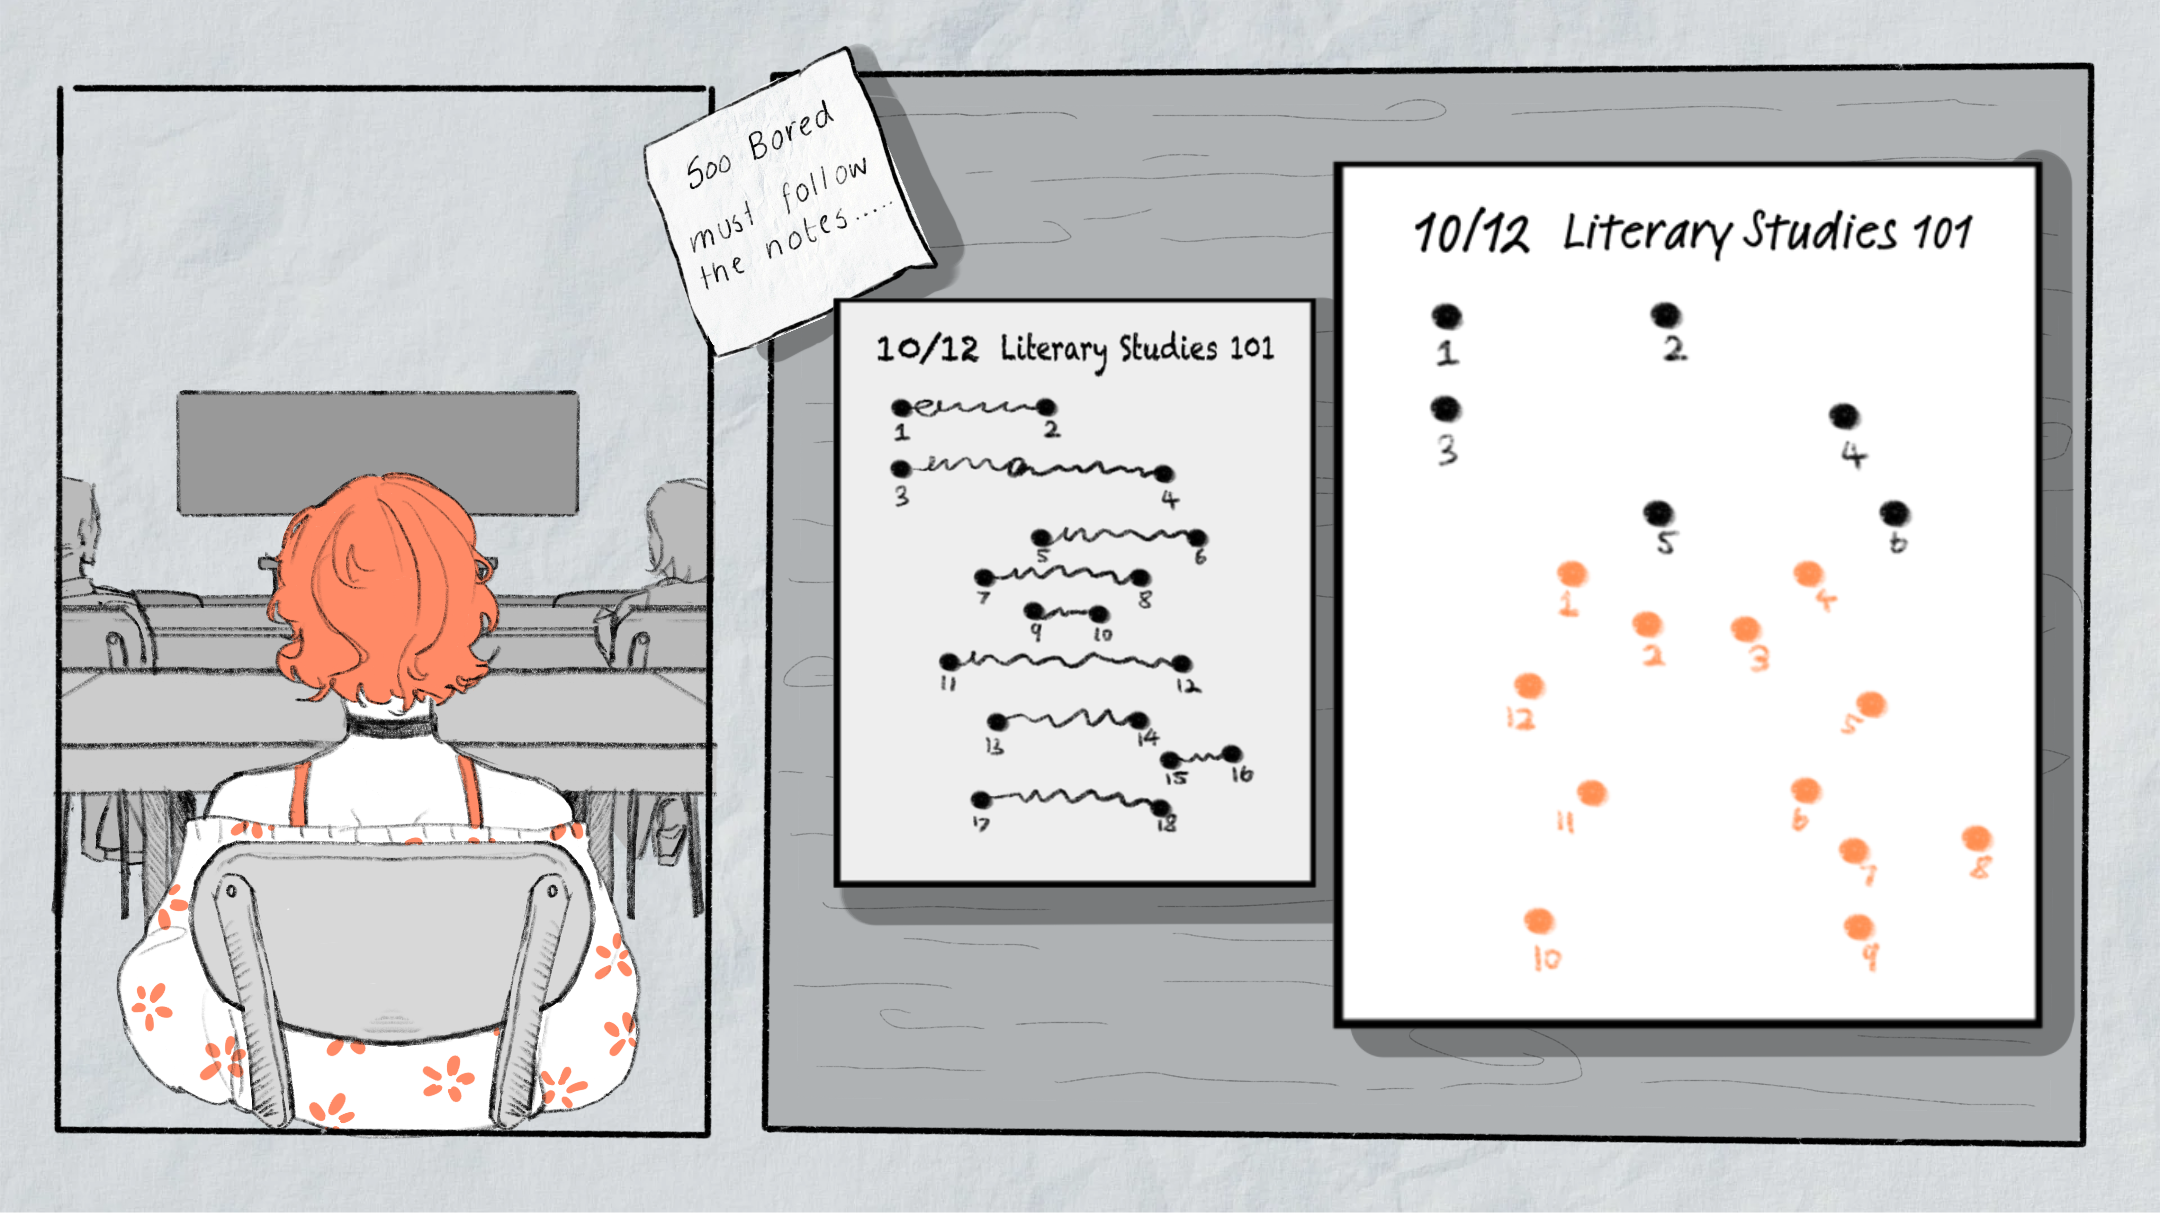 Soo Bored
must follow
the notes.....
10/12 Literary Studies 101
1 2
3 4
5 6
7 8
9 10
11 12
13 14
15 16
17 18
10/12 Literary Studies 101
1 2
3 4
5 6
1 4
2 3
12 5
11 6
7 8
10 9